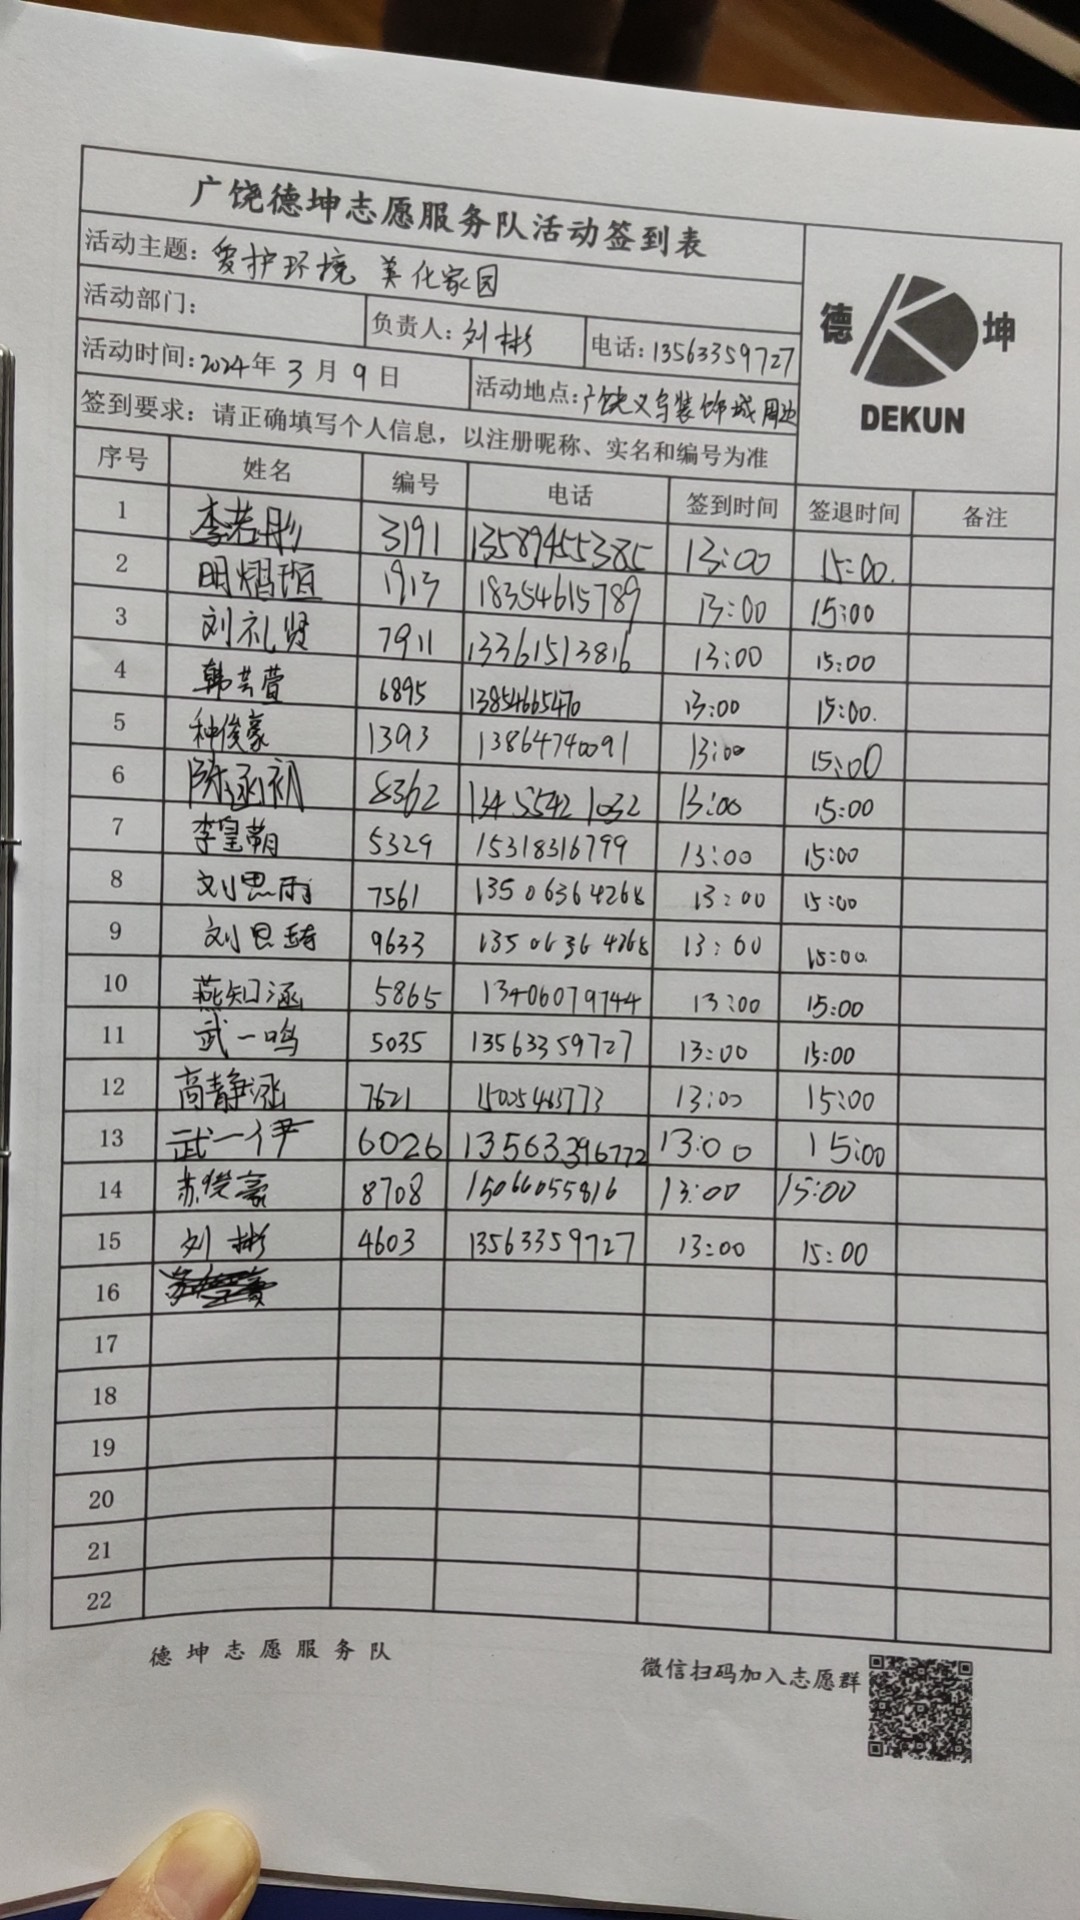 广饶德坤志愿服务队活动签到表
活动主题：爱护环境 美化家园
德 坤
DEKUN
活动部门： 负责人：刘彬 电话：13563359727
活动时间：2024年3月9日 活动地点：广饶义乌装饰城周边
签到要求：请正确填写个人信息，以注册昵称、实名和编号为准
序号 姓名 编号 电话 签到时间 签退时间 备注
1 李若彤 3191 13589455385 13:00 15:00.
2 明熠瑄 1913 18354615789 13:00 15:00
3 刘礼贤 7911 13361513816 13:00 15:00
4 韩芸萱 6895 13854665470 13:00 15:00.
5 种俊豪 1393 13864740091 13:00 15:00
6 陈函初 8362 13455421032 13:00 15:00
7 李皇萌 5329 15318316799 13:00 15:00
8 刘思雨 7561 13506364268 13:00 15:00
9 刘思琦 9633 13506364268 13:00 15:00.
10 燕知涵 5865 13406079744 13:00 15:00
11 武一鸣 5035 13563359727 13:00 15:00
12 高静涵 7621 15005463773 13:00 15:00
13 武一伊 6026 13563396772 13:00 15:00
14 苏俊豪 8708 15066055816 13:00 15:00
15 刘彬 4603 13563359727 13:00 15:00
16
17
18
19
20
21
22
德坤志愿服务队 微信扫码加入志愿群